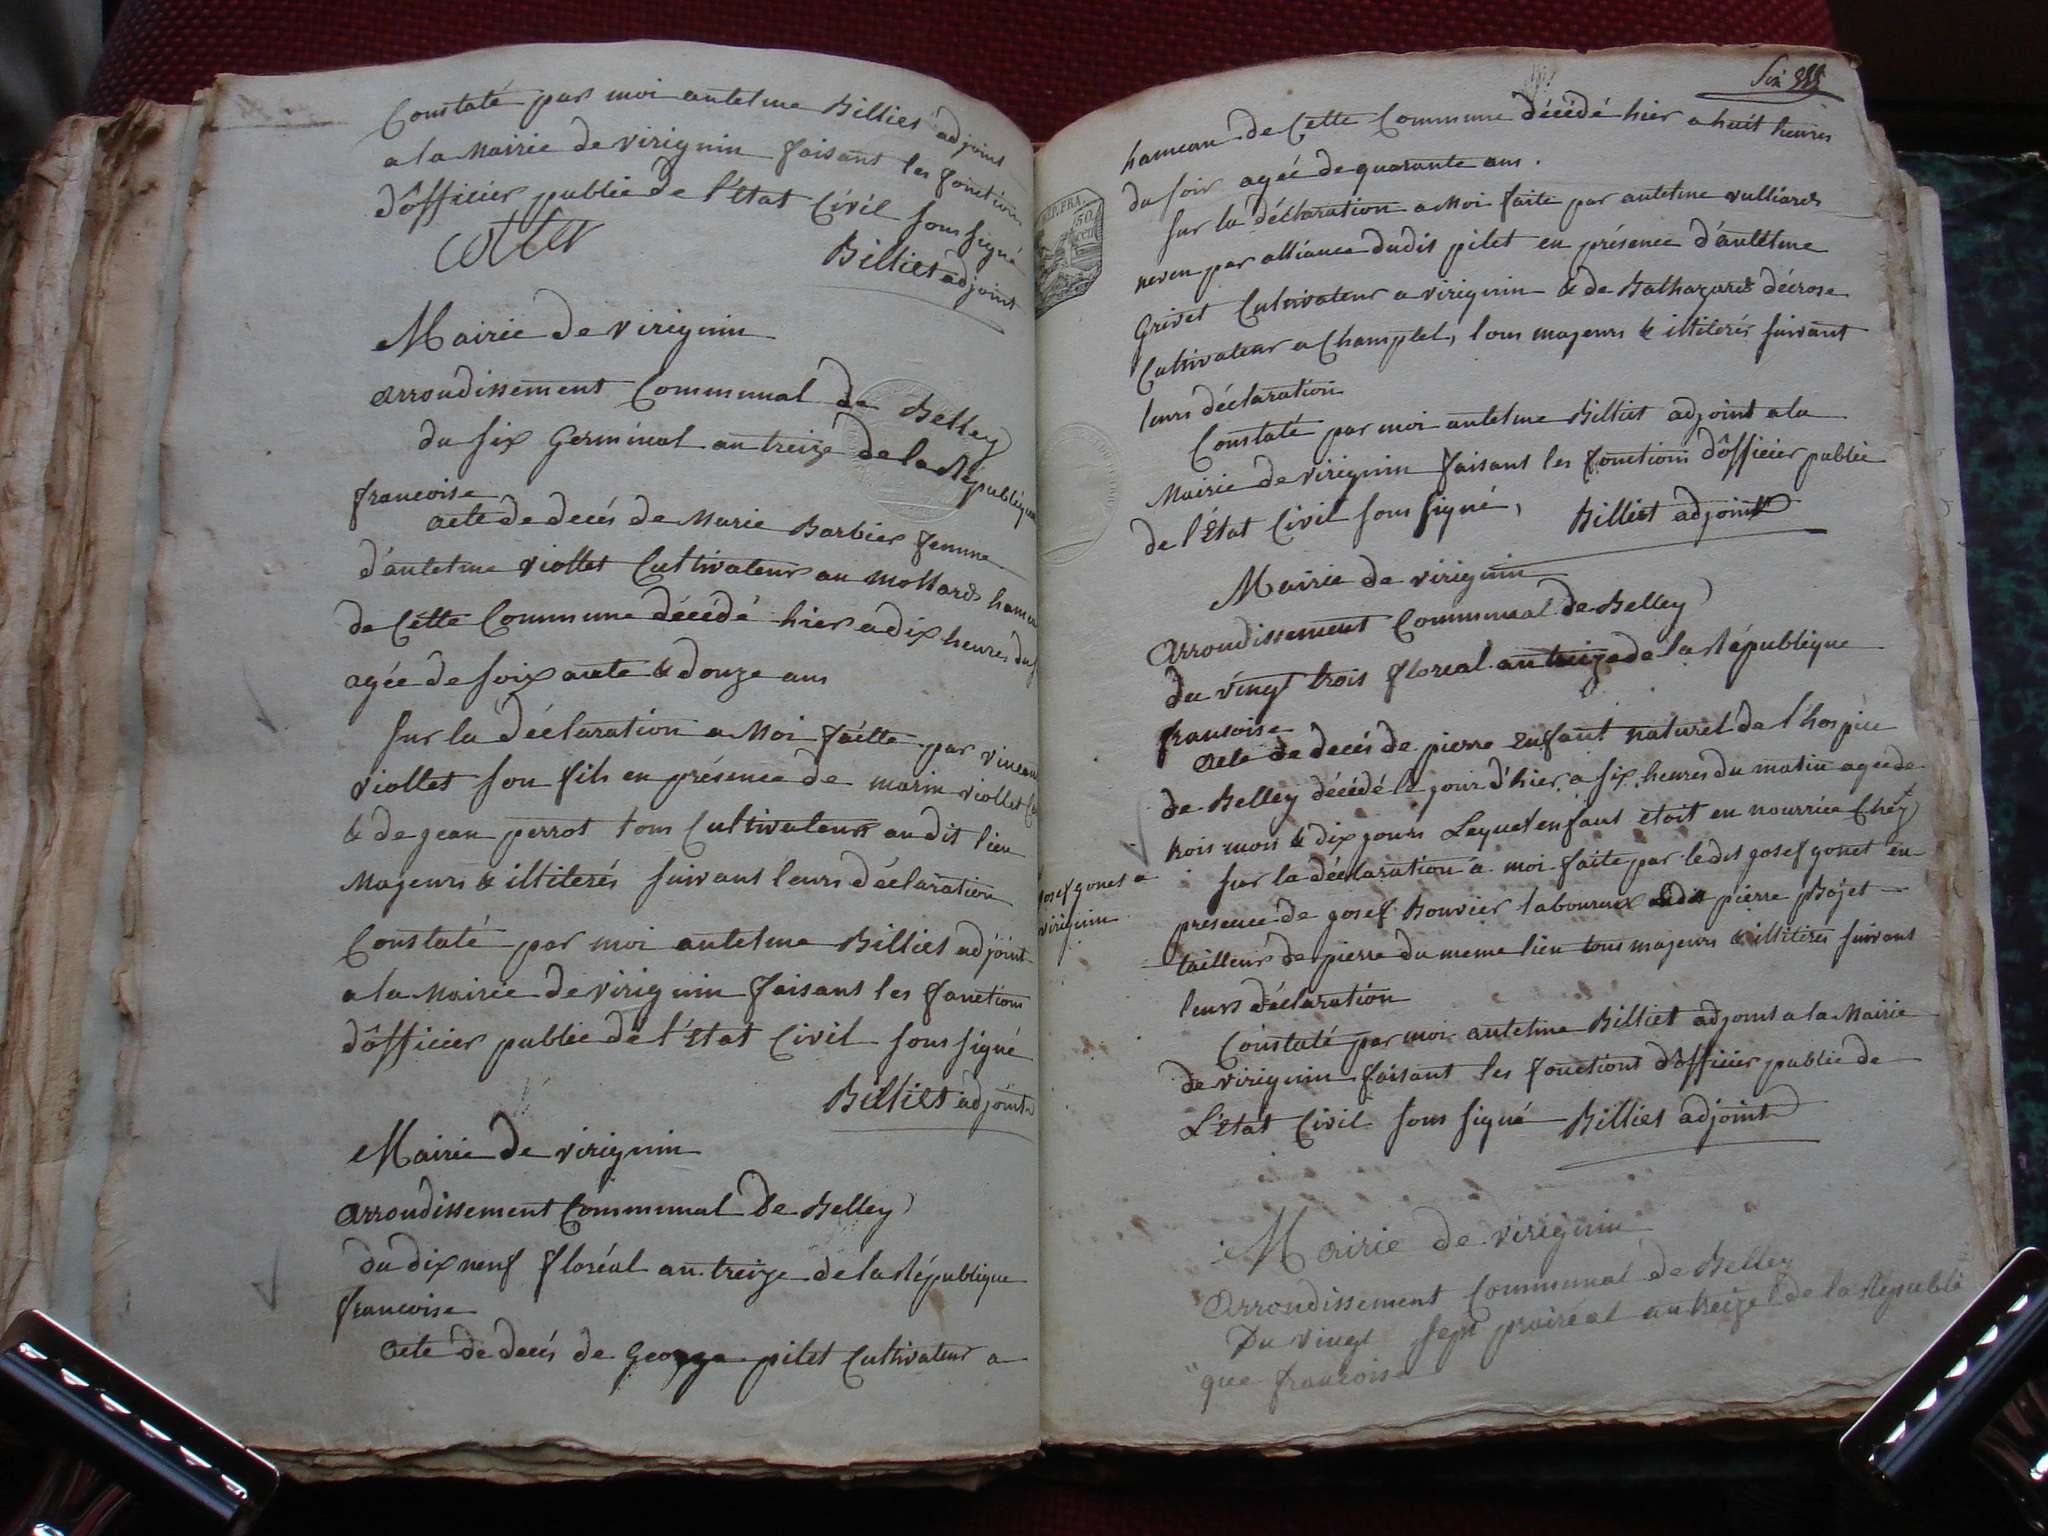 Constaté par moi antelme Billiet adjoint
a la Mairie de virignin faisant les fonction
d'officier public de l'Etat Civil sous signé
Billiet adjoint
Mairie de virignin
arrondissement Communal de Belley
du six Germinal an treize de la République
francoise
acte de decés de Marie Barbier femme
d'antelme viollet Cultivateur au mollard hameau
de Cétte Commune décédé hier a dix heures du
agée de soixante & douze ans
sur la déclaration a Moi faitte par vincent
viollet son fils en présence de marin viollet
& de jean perrot tous Cultivateurs audit lieu
Majeurs & illiterés suivant leurs déclaration
Constaté par moi antelme Billiet adjoint
a la Mairie de virignin faisant les fonctions
d'officier public de l'Etat Civil sous signé
Billiet adjoint
Mairie de virignin
arrondissement Communal de Belley
du dix neuf floréal an treize de la République
francoise
acte de decés de George pilet Cultivateur a
Six
hameau de Cette Commune décédé hier a huit heures
du soir agée de quarante ans.
sur la déclaration a Moi faite par antelme vulliard
neveu par alliance dudit pilet en présence d'antelme
Grivet Cultivateur a virignin & de Balthazard décrose
Cultivateur a Champtel, tous majeurs & illiterés suivant
leurs déclaration
Constaté par moi antelme Billiet adjoint a la
Mairie de virignin faisant les fonctions d'officier public
de l'Etat Civil sous signé, Billiet adjoint
Mairie de virignin
arrondissement Communal de Belley
du vingt trois floreal an treize de la République
francoise
acte de decés de pierre enfant naturel de l'hospice
de Belley décédé le jour d'hier a six heures du matin agée de
trois mois & dix jours Lequel enfant étoit en nourrice Chéz
josef gonet a
virignin
sur la déclaration a moi faite par ledit josef gonet en
présence de josef Bouvier laboureur & de pierre Bojet
tailleur de pierre du meme lieu tous majeurs & illiterés suivant
leurs déclaration
Constaté par moi antelme Billiet adjoint a la Mairie
de virignin faisant les fonctions d'officier public de
L'Etat Civil sous signé Billiet adjoint
Mairie de virignin
arrondissement Communal de Belley
Du vingt sept prairéal an treize de la Républi
que francoise
REP. FRA.
50
cent